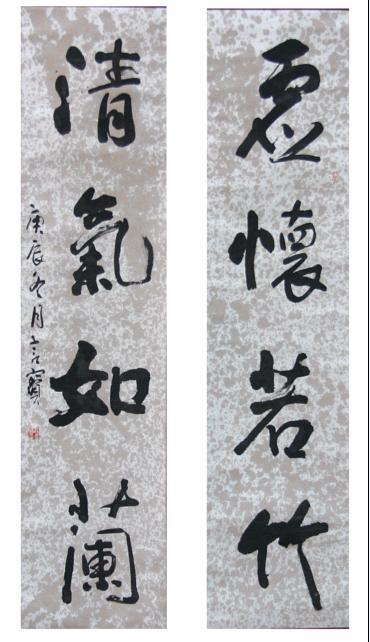 虛懷若竹
清氣如蘭
庚辰冬月言寶